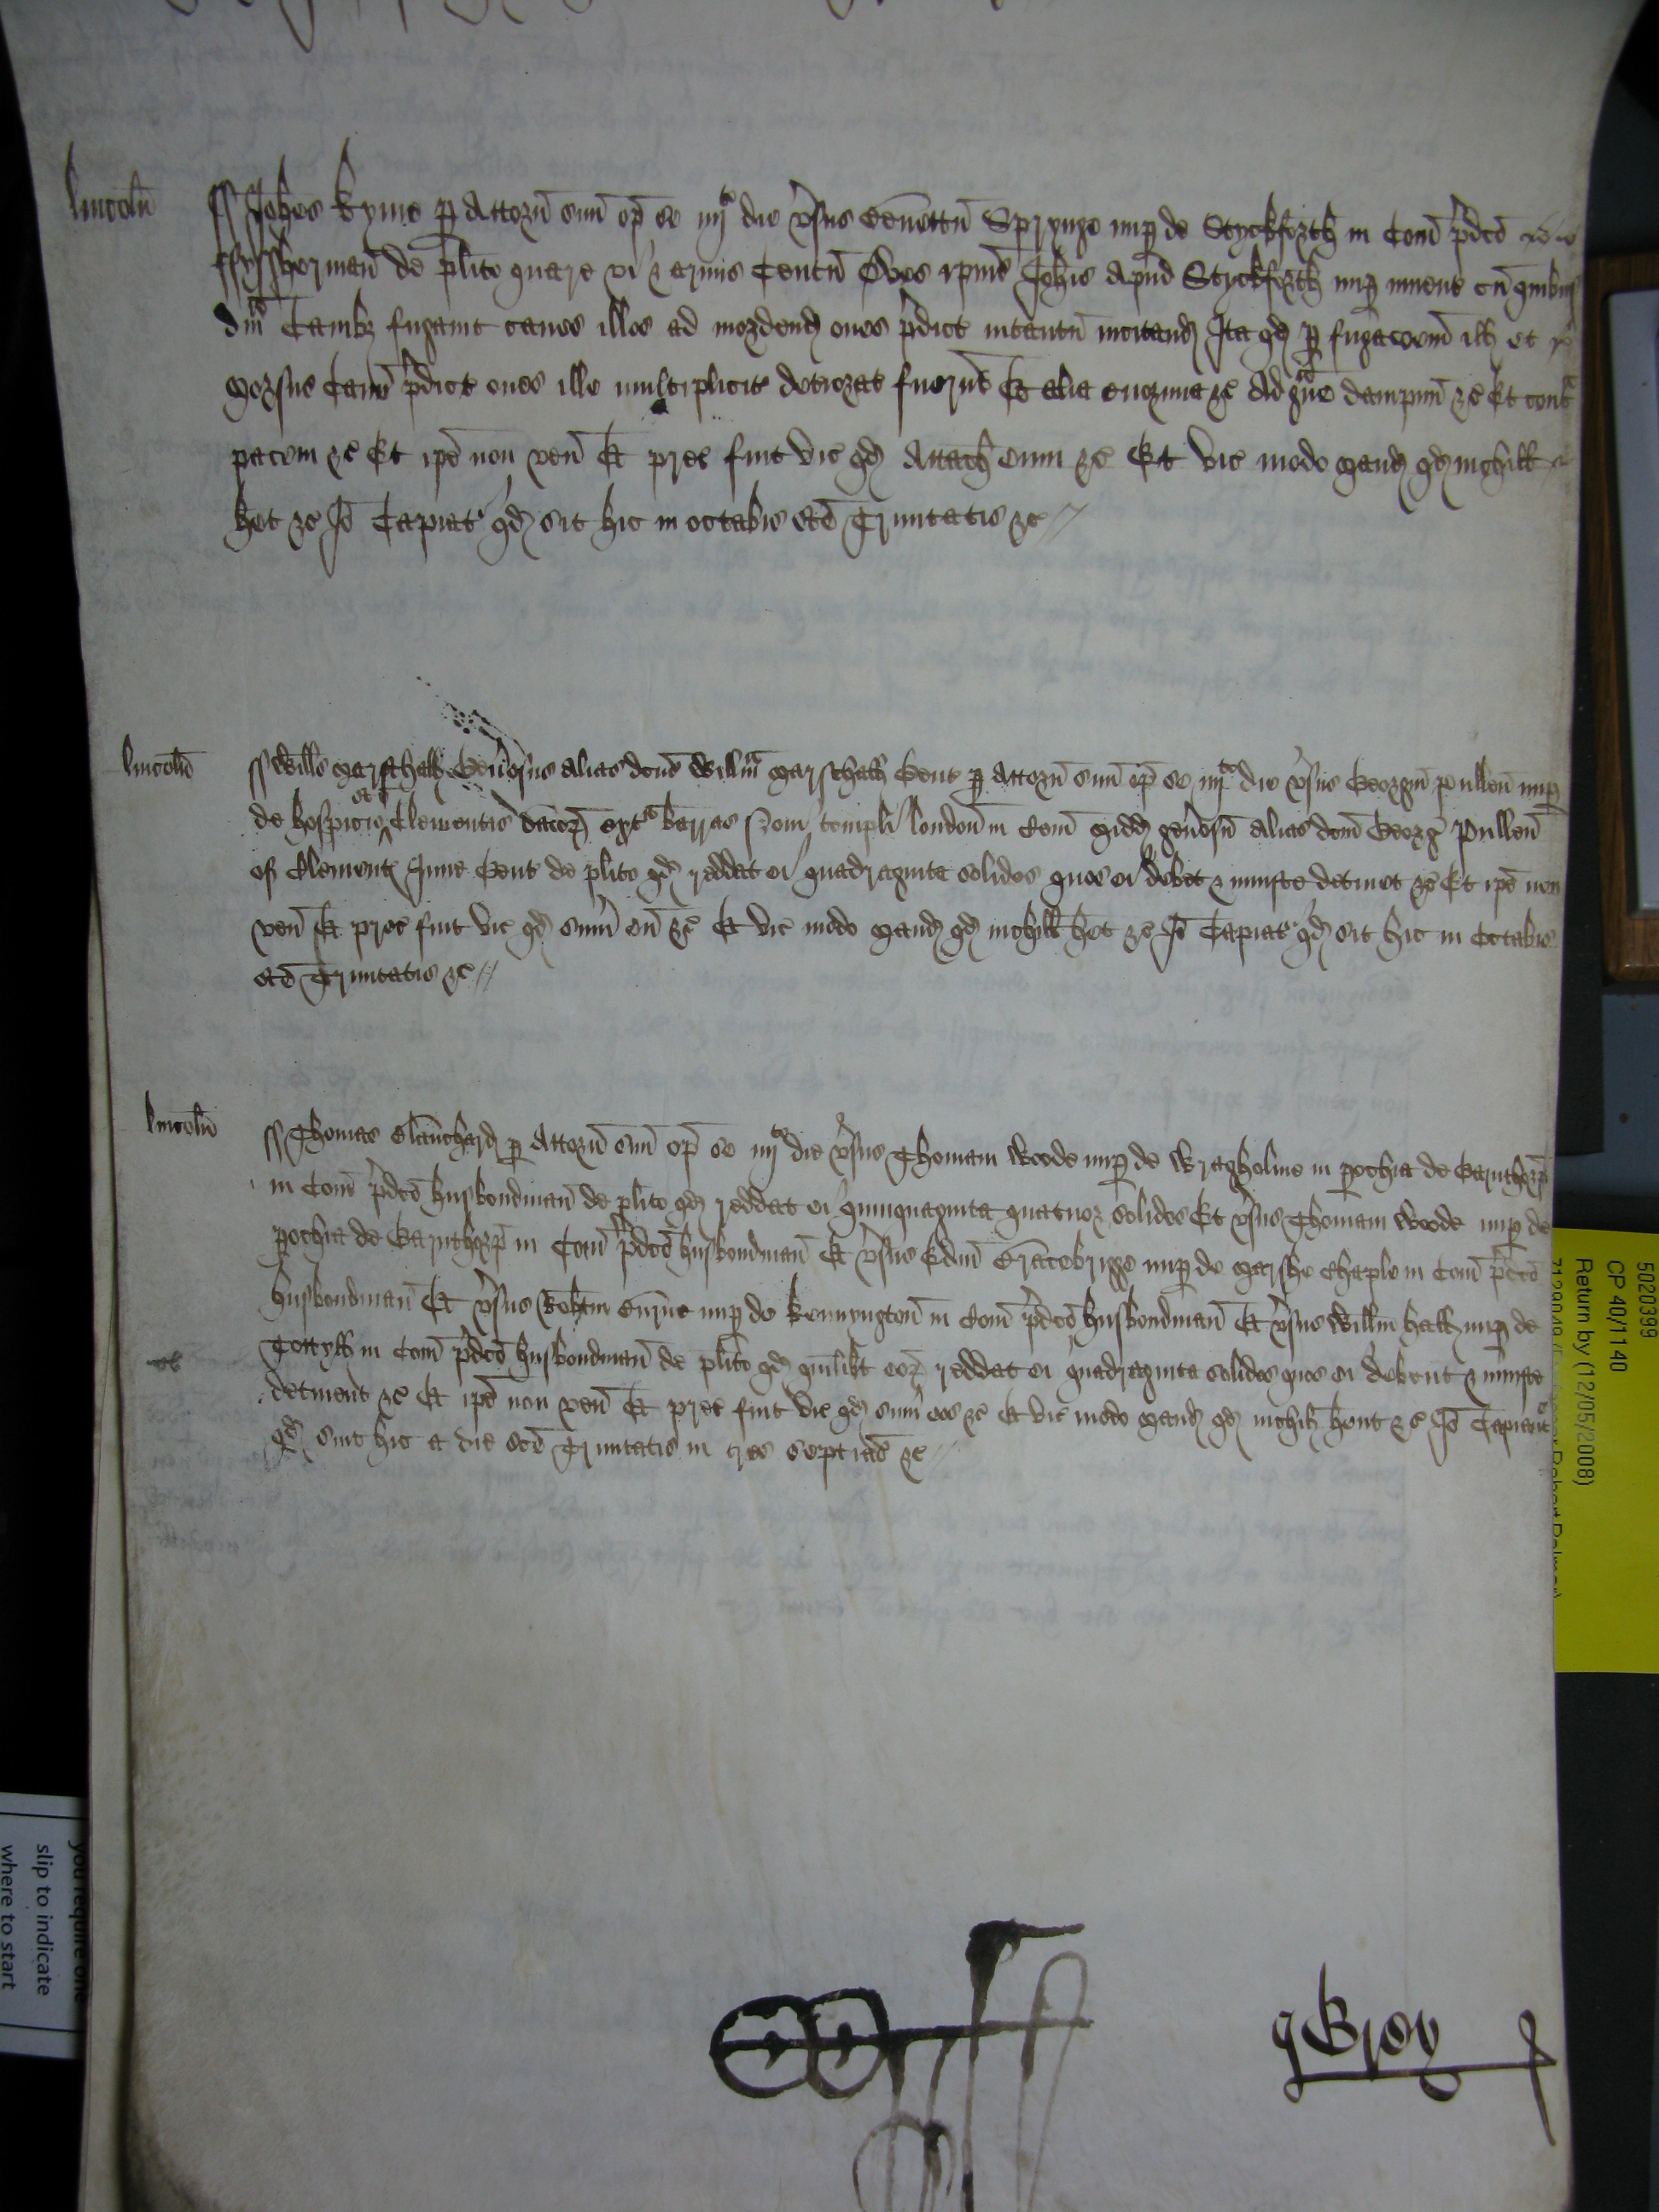 lincoln̄
ss Joħes Kyme p Attorn̄ suū op̄ se iiijto die v̓sus Benettū Sprynge nup de Styckforth in Com̄ p̓dcō
ffyssherman̄ de plito quare vi & armis Centū Oves ipius Joħis apud Styckforth nup invent cū quibusdm̄
Canibʒ fugavit canes illos ad mordend oves p̓dict intantū incitand Ita qd p fugacōem ill et
morsus Canū p̓dict oves ille multiplicit detiorat fuerunt Et alia enormia &c Ad g̓ve dampnū &c Et cont̓
pacem &c Et ip̄e non ven̄ Et prec fuit vic qd Attach eum &c Et vic modo mand qd nichill
het &c Iō Capiat̓ qd sit hic in octabis sc̄e Trinitatis &c //
lincoln̄
ss Wills Marschall Gen̓osus alias dcūs Willm̄ Marschall Gent p Attorn̄ suū op̄ se iiijto die v̓sus Georgiū pullen̄ nup
de hospicio sc̄i Clementis Dacor̄ ext̓ barras novi templi london̄ in Com̄ Midd gen̓osū alias dcm̄ Georg̓ Pullen̄
of Clement Inne Gent de plito qd reddat ei quadraginta solidos quos ei debet & iniuste detinet &c Et ip̄e non
ven̄ Et prec fuit vic qd sum̄ eū &c Et vic modo mand qd nichill het &c Iō Capiat̓ qd sit hic in Octabis
sc̄e Trinitatis &c //
lincoln̄
ss Thomas Blanchard p Attorn̄ suū op̄ se iiijto die v̓sus Thomam Woode nup de Wragholme in pochia de Garnthorp̄
in Com̄ p̓dcō husbondman̄ de plito qd reddat ei quinquaginta quatuor solidos Et v̓sus Thomam Woode nup de
pochia de Garnthorp̄ in Com̄ p̓dcō husbondman̄ Et v̓sus Edm̄ Gracebrigge nup de Marshe Chaple in Com̄ p̓dcō
husbondman̄ Et v̓sus Robtm nup de Kennyngton̄ in Com̄ p̓dcō husbondman̄ Et v̓sus Willm̄ hall nup de
Tottyll in Com̄ p̓dcō husbondman̄ de plito qd quilibt eor̄ reddat ei quadraginta solidos quos ei debent & iniuste
detinent &c Et ip̄i non ven̄ Et prec fuit vic qd sum̄ eos &c Et vic modo mand qd nichil hent &c Iō Capiant̓
qd sint hic a die sc̄e Trinitatis in tres septias &c //
5020399
CP 40/1140
Return by (12/05/2008)
you require one
slip to indicate
where to start